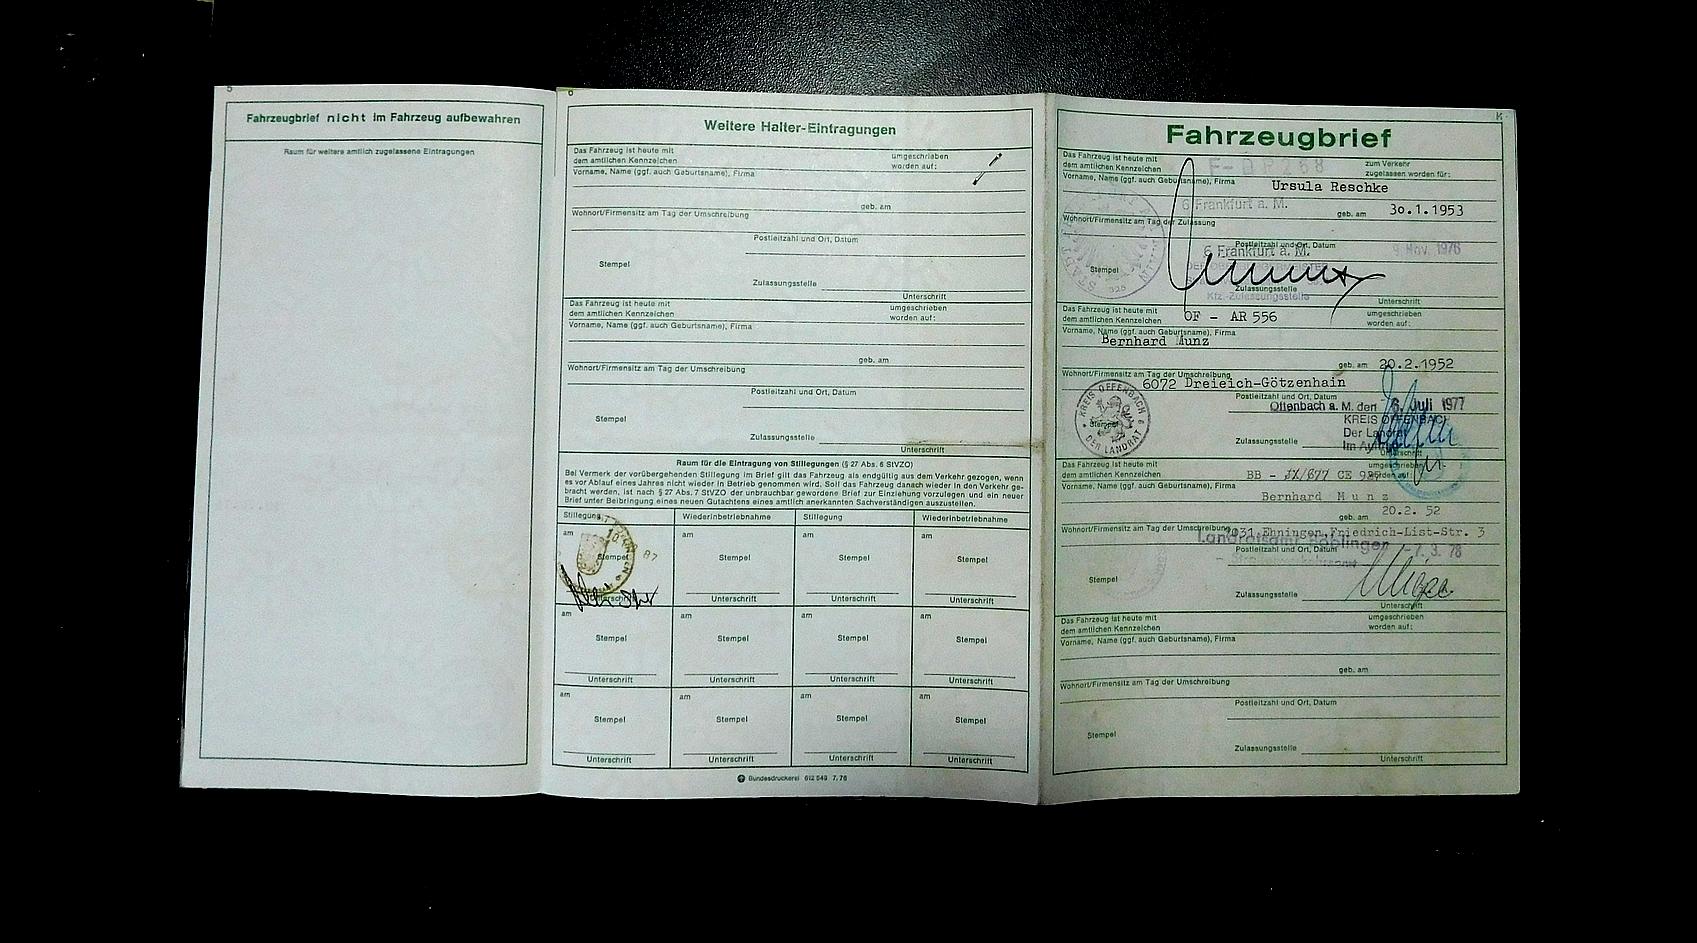 5
Fahrzeugbrief nicht im Fahrzeug aufbewahren
Raum für weitere amtlich zugelassene Eintragungen
6
Weitere Halter-Eintragungen
Das Fahrzeug ist heute mit
dem amtlichen Kennzeichen
umgeschrieben
worden auf:
Vorname, Name (ggf. auch Geburtsname), Firma
geb. am
Wohnort/Firmensitz am Tag der Umschreibung
Postleitzahl und Ort, Datum
Stempel
Zulassungsstelle
Unterschrift
Das Fahrzeug ist heute mit
dem amtlichen Kennzeichen
umgeschrieben
worden auf:
Vorname, Name (ggf. auch Geburtsname), Firma
geb. am
Wohnort/Firmensitz am Tag der Umschreibung
Postleitzahl und Ort, Datum
Stempel
Zulassungsstelle
Unterschrift
Raum für die Eintragung von Stillegungen (§ 27 Abs. 6 StVZO)
Bei Vermerk der vorübergehenden Stillegung im Brief gilt das Fahrzeug als endgültig aus dem Verkehr gezogen, wenn
es vor Ablauf eines Jahres nicht wieder in Betrieb genommen wird. Soll das Fahrzeug danach wieder in den Verkehr ge-
bracht werden, ist nach § 27 Abs. 7 StVZO der unbrauchbar gewordene Brief zur Einziehung vorzulegen und ein neuer
Brief unter Beibringung eines neuen Gutachtens eines amtlich anerkannten Sachverständigen auszustellen.
Stillegung Wiederinbetriebnahme Stillegung Wiederinbetriebnahme
am am am am
87
Stempel Stempel Stempel Stempel
Unterschrift Unterschrift Unterschrift Unterschrift
am am am am
Stempel Stempel Stempel Stempel
Unterschrift Unterschrift Unterschrift Unterschrift
am am am am
Stempel Stempel Stempel Stempel
Unterschrift Unterschrift Unterschrift Unterschrift
Bundesdruckerei 612 548 7.76
Fahrzeugbrief
Das Fahrzeug ist heute mit
dem amtlichen Kennzeichen
zum Verkehr
zugelassen worden für:
Vorname, Name (ggf. auch Geburtsname), Firma
Ursula Reschke
6 Frankfurt a. M.
geb. am 30.1.1953
Wohnort/Firmensitz am Tag der Zulassung
Postleitzahl und Ort, Datum
6 Frankfurt a. M. 9. Nov. 1976
Stempel
326
Zulassungsstelle
Kfz.-Zulassungsstelle
Unterschrift
Das Fahrzeug ist heute mit
dem amtlichen Kennzeichen
OF - AR 556
umgeschrieben
worden auf:
Vorname, Name (ggf. auch Geburtsname), Firma
Bernhard Munz
geb. am 20.2.1952
Wohnort/Firmensitz am Tag der Umschreibung
6072 Dreieich-Götzenhain
Postleitzahl und Ort, Datum
Offenbach a. M. den 6. Juli 1977
KREIS OFFENBACH
DER LANDRAT
Stempel
KREIS OFFENBACH
Der Landrat
Im Auftrag
Zulassungsstelle
Unterschrift
Das Fahrzeug ist heute mit
dem amtlichen Kennzeichen
BB -
umgeschrieben
worden auf:
Vorname, Name (ggf. auch Geburtsname), Firma
Bernhard Munz
geb. am 20.2. 52
Wohnort/Firmensitz am Tag der Umschreibung
7031 Ehningen, Friedrich-List-Str. 3
Landratsamt Böblingen
Postleitzahl und Ort, Datum
-7. 3. 78
Stempel
Zulassungsstelle
Unterschrift
Das Fahrzeug ist heute mit
dem amtlichen Kennzeichen
umgeschrieben
worden auf:
Vorname, Name (ggf. auch Geburtsname), Firma
geb. am
Wohnort/Firmensitz am Tag der Umschreibung
Postleitzahl und Ort, Datum
Stempel
Zulassungsstelle
Unterschrift